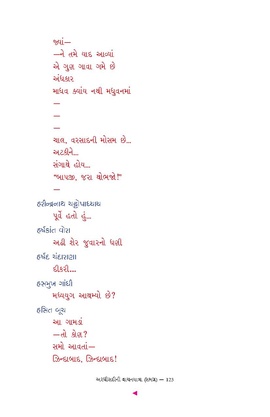 જ્યાં—
—ને તમે યાદ આવ્યાં
એ ગુણ ગાવા ગમે છે
અંધકાર
માધવ ક્યાંય નથી મધુવનમાં
—
—
—
ચાલ, વરસાદની મોસમ છે...
અટકીને...
સંગાથે હોવ...
“બાપજી, જરા થોભજો!”
—
હરીન્દ્રનાથ ચટ્ટોપાધ્યાય
પૂર્વે હતો તું...
હર્ષકાંત વોરા
અઢી શેર જુવારનો ધણી
હર્ષદ ચંદારાણા
દીકરી....
હસમુખ ગાંધી
મધ્યયુગ આથમ્યો છે?
હસિત બૂચ
આ ગામડાં
—તો કોણ?
સમો આવતાં—
ઝિન્દાબાદ, ઝિન્દાબાદ!
— 123